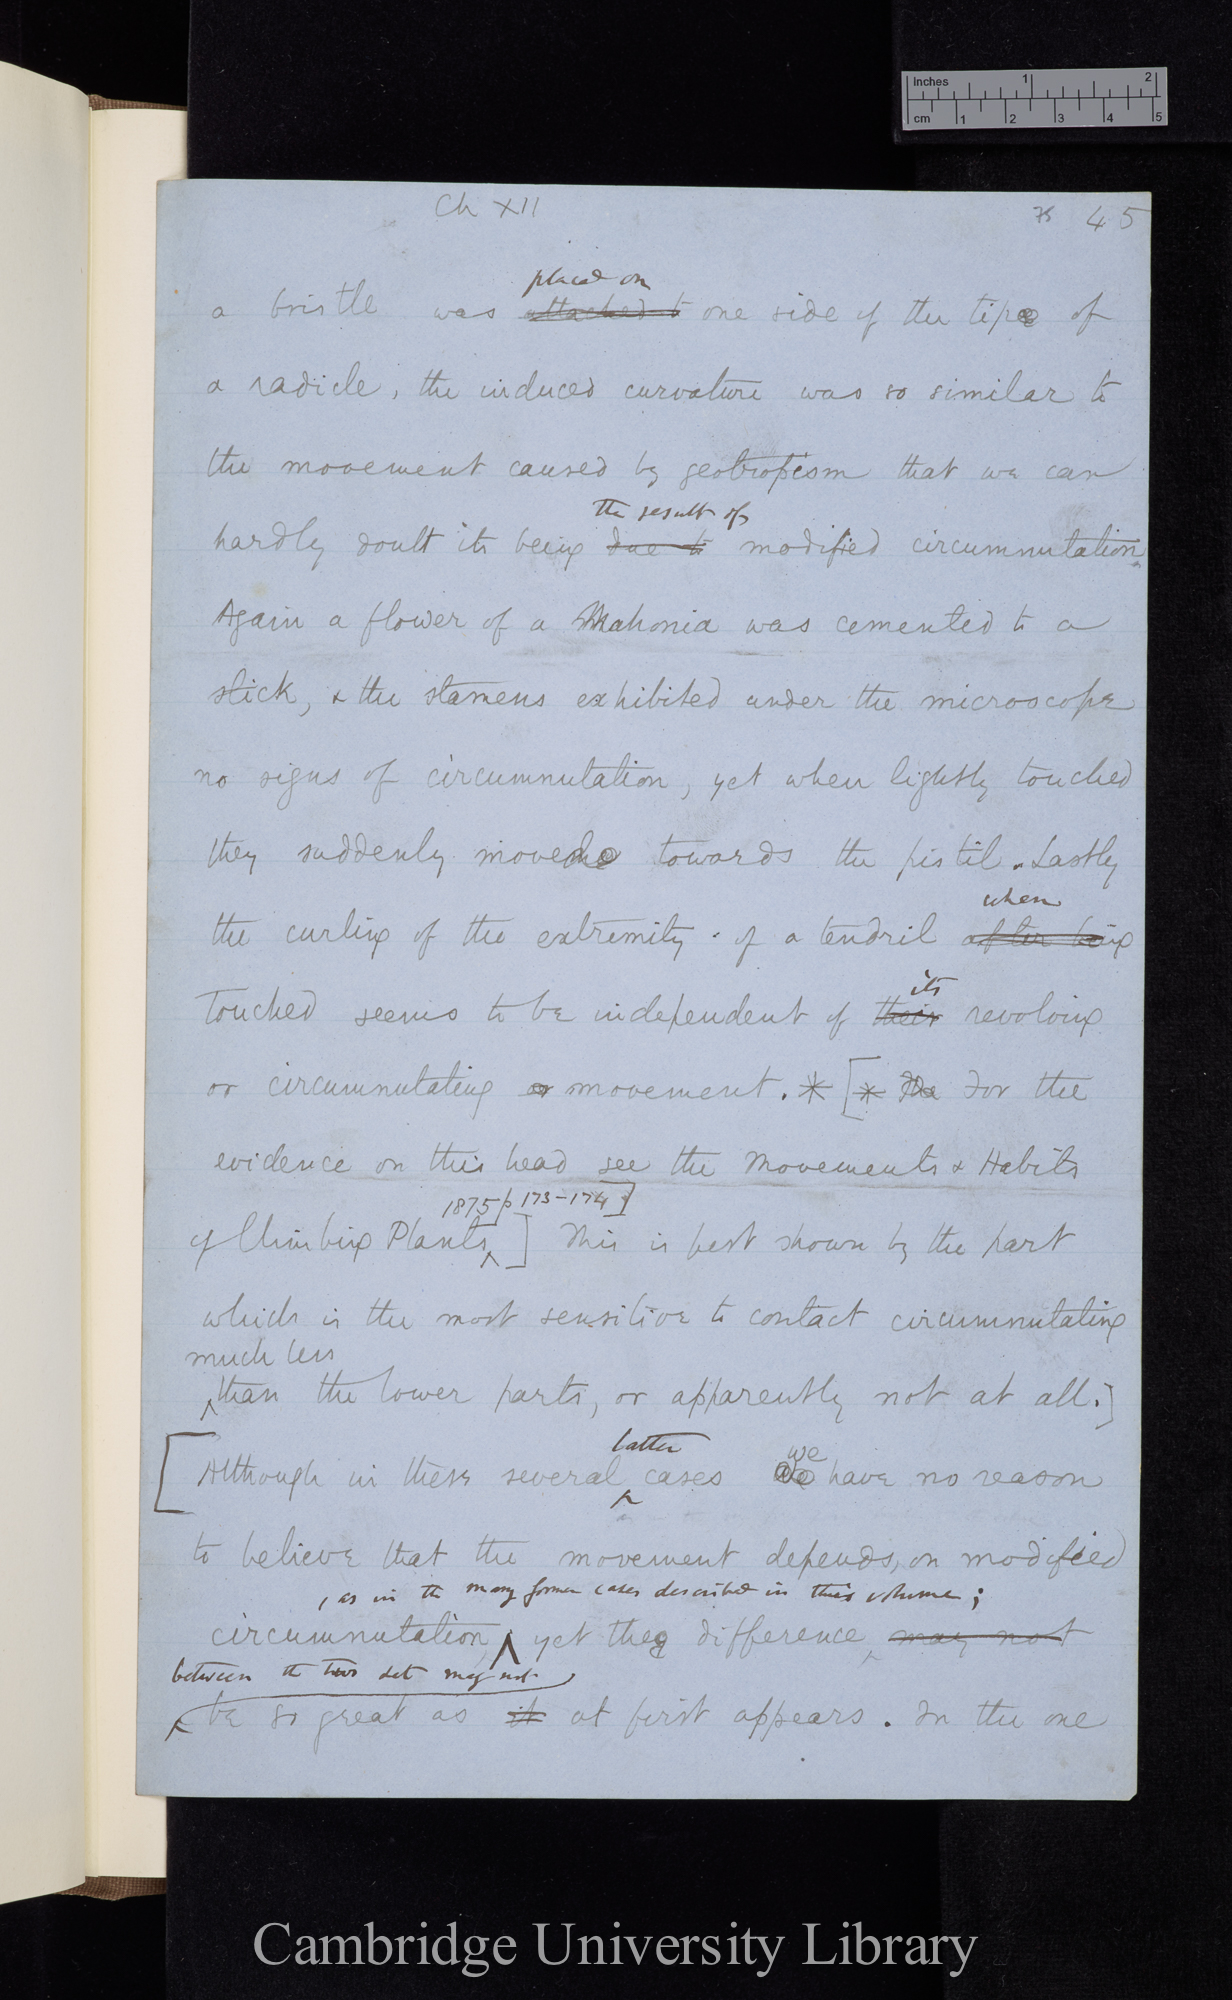 Inches 1 2
cm 1 2 3 4 5
Ch XII
75 45
placed on
a bristle was attached to one side of the tip of
a radicle, the induced curvature was so similar to
the movement caused by geotropism that we can
the result of
hardly doubt its being due to modified circumnutation.
Again a flower of a Mahonia was cemented to a
stick, & the stamens exhibited under the microscope
no signs of circumnutation, yet when lightly touched
they suddenly moved towards the pistil. Lastly
when
the curling of the extremity of a tendril after being
its
touched seems to be independent of their revolving
or circumnutating movement. * [* For the
evidence on this head see the Movements & Habits
1875 p 173-174]
of Climbing Plants ] This is best shown by the part
which is the most sensitive to contact circumnutating
much less
than the lower parts, or apparently not at all.]
latter
we
[Although in these several cases have no reason
to believe that the movement depends, on modified
, as in the many former cases described in this volume;
circumnutation, yet the difference may not
between the two set may not
be so great as it at first appears. In the one
Cambridge University Library